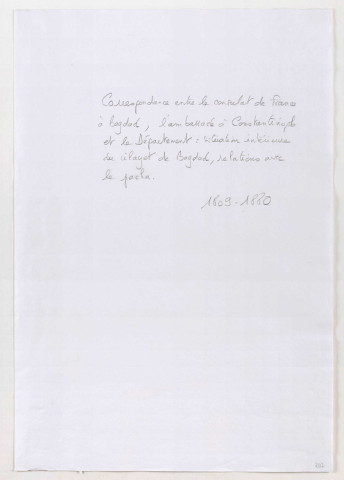 Correspondance entre le consulat de France
à Bagdad, l'ambassade à Constantinople
et le Département : situation intérieure
du vilayet de Bagdad, relations avec
le pacha.
1809-1880